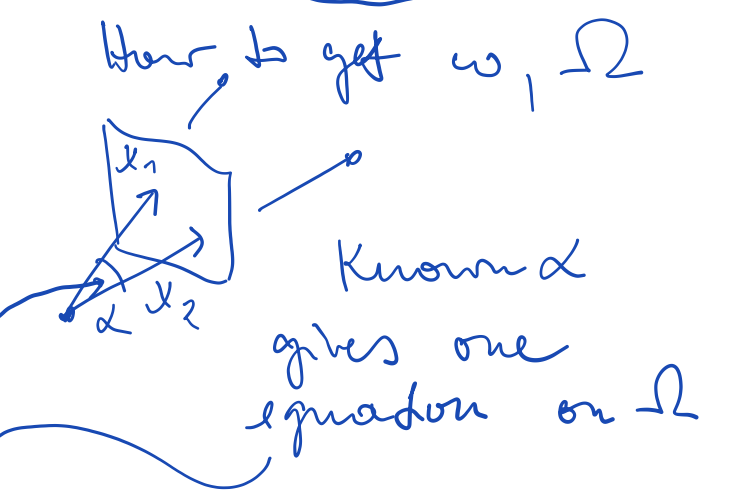 How to get ω, Ω
x₁
α x₂
Known α
gives one
equation on Ω